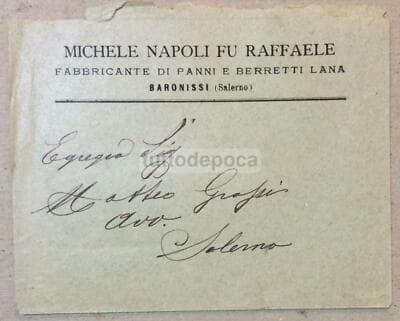 MICHELE NAPOLI FU RAFFAELE
FABBRICANTE DI PANNI E BERRETTI LANA
BARONISSI (Salerno)
Egregio Sig
tuttodepoca
Matteo Grassi
Avv.
Salerno